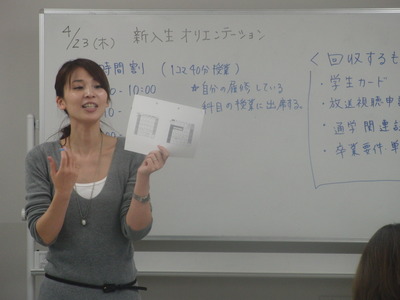 4/23(木) 新入生オリエンテーション
時間割 (1コマ40分授業)
0-10:00 ※自分の履修している
科目の授業に出席する。
<回収するも
・学生カード
・放送視聴申
・通学関連
・卒業要件・単